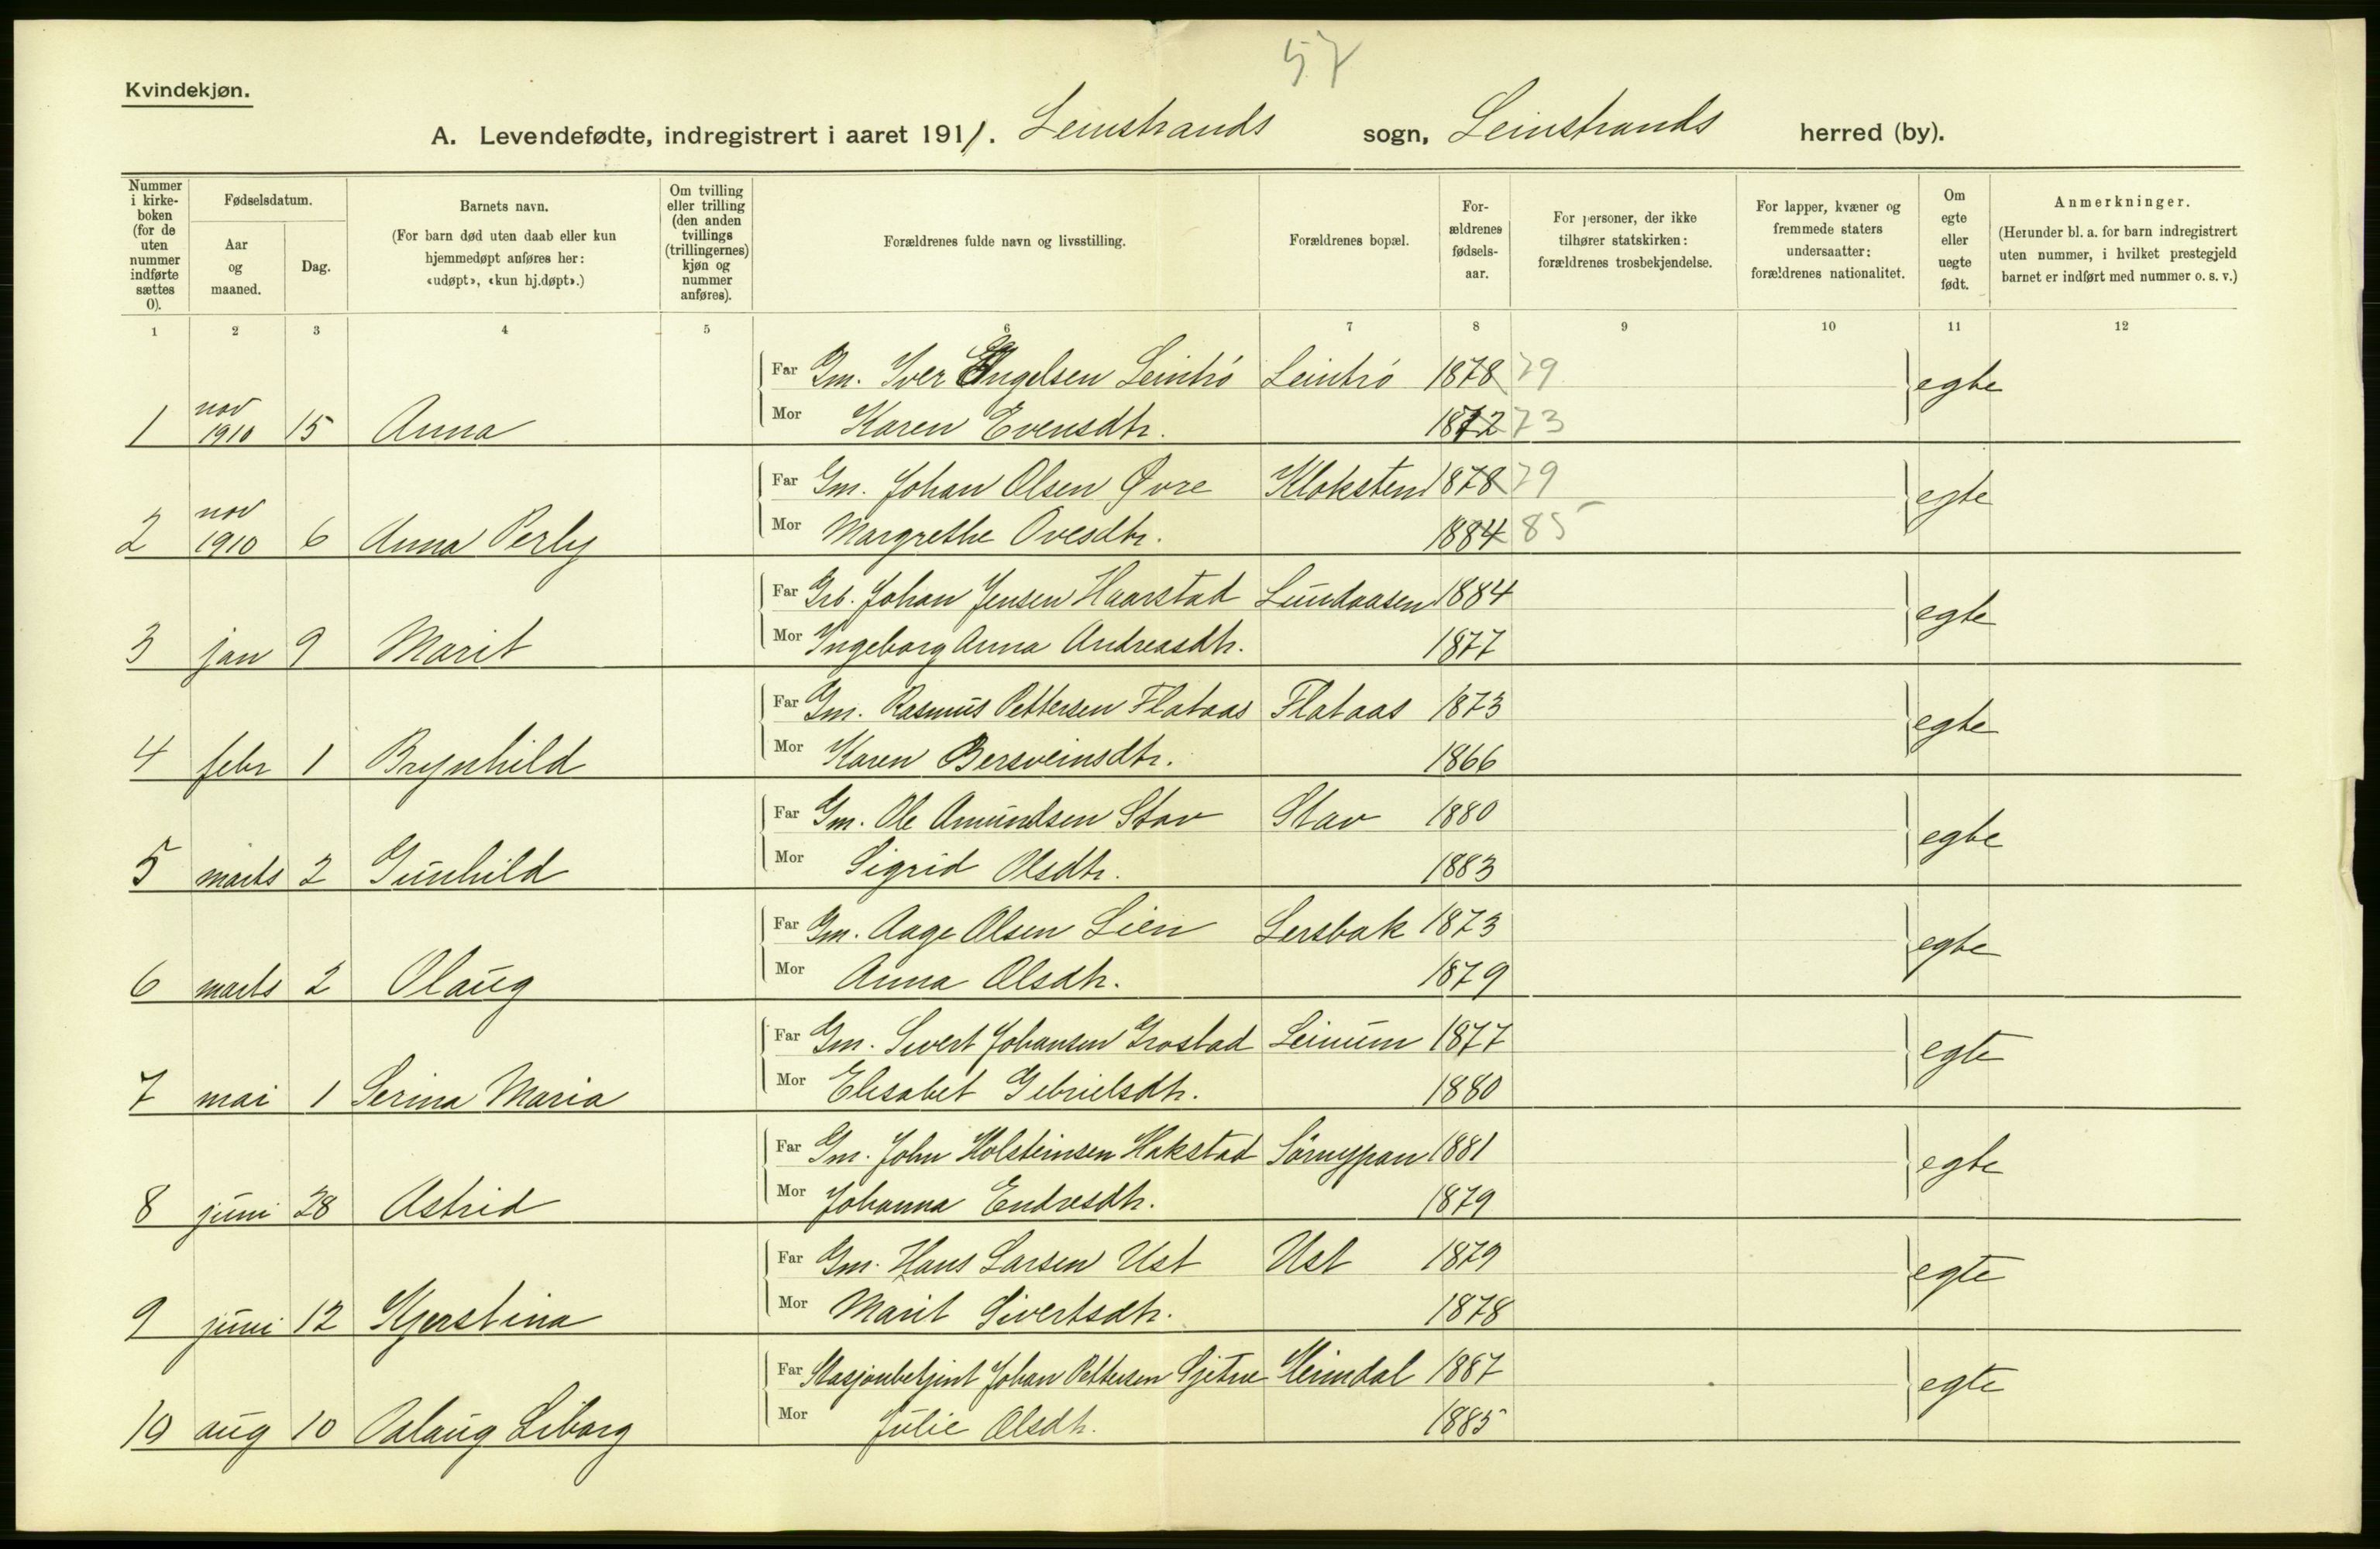 57
Kvindekjøn.
A. Levendefødte, indregistrert i aaret 1911. Leinstrands sogn, Leinstrands herred (by).
Nummer i kirke-boken (for de uten nummer indførte sættes 0).
Fødselsdatum.
Aar og maaned.
Dag.
Barnets navn.
(For barn død uten daab eller kun hjemmedøpt anføres her: «udøpt», «kun hj.døpt».)
Om tvilling eller trilling (den anden tvillings (trillingernes) kjøn og nummer anføres).
Forældrenes fulde navn og livsstilling.
Forældrenes bopæl.
For-ældrenes fødsels-aar.
For personer, der ikke tilhører statskirken: forældrenes trosbekjendelse.
For lapper, kvæner og fremmede staters undersaatter: forældrenes nationalitet.
Om egte eller uegte født.
Anmerkninger.
(Herunder bl. a. for barn indregistrert uten nummer, i hvilket prestegjeld barnet er indført med nummer o. s. v.)
1 2 3 4 5 6 7 8 9 10 11 12
Far Gm. Iver Engelsen Leintrö Leintrö 1878 79 egte
1 nov 1910 15 Anna Mor Karen Evensdtr. 1872 73
Far Gm. Johan Olsen Øvre Kloksten 1878 79 egte
2 nov 1910 6 Anna Perly Mor Margrethe Ovesdtr. 1884 85
Far Grb. Johan Jensen Haarstad Lundaasen 1884 egte
3 jan 9 Marit Mor Ingeborg Anna Andreasdtr. 1877
Far Gm. Rasmus Pettersen Flataas Flataas 1873 egte
4 febr 1 Brynhild Mor Karen Bersveinsdtr. 1866
Far Gm. Ole Amundsen Stav Stav 1880 egte
5 marts 2 Gunhild Mor Sigrid Olsdtr. 1883
Far Gm. Aage Olsen Lien Lersbak 1873 egte
6 marts 2 Olaug Mor Anna Olsdtr. 1879
Far Gm. Sivert Johansen Grostad Leinum 1877 egte
7 mai 1 Serina Maria Mor Elisabet Gebrielsdtr. 1880
Far Gm. John Holsteinsen Hakstad Sörnypan 1881 egte
8 juni 28 Astrid Mor Johanna Endresdtr. 1879
Far Gm. Hans Larsen Ust Ust 1879 egte
9 juni 12 Kjerstina Mor Marit Sivertsdtr. 1878
Far Stasjonbetjent Johan Pettersen Sjetne Heimdal 1887 egte
10 aug 10 Aslaug Liborg Mor Julie Olsdtr. 1885